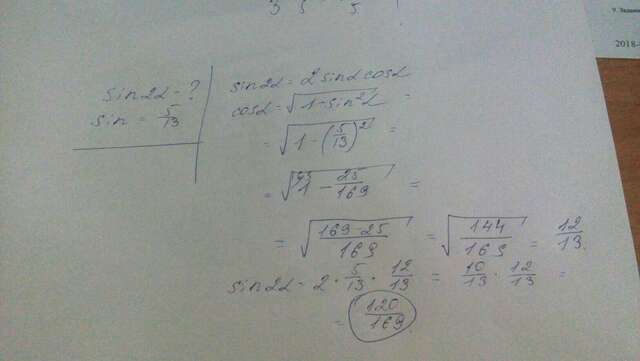 3 5 5.
9. Задани
2018-
sin2α - ?
sin = 5/13
sin2α = 2 sinα cosα
cosα = √(1 - sin²α) =
= √(1 - (5/13)²) =
= √(1 - 25/169) =
= √((169-25)/169) = √(144/169) = 12/13.
sin2α = 2 · 5/13 · 12/13 = 10/13 · 12/13 =
= 120/169.